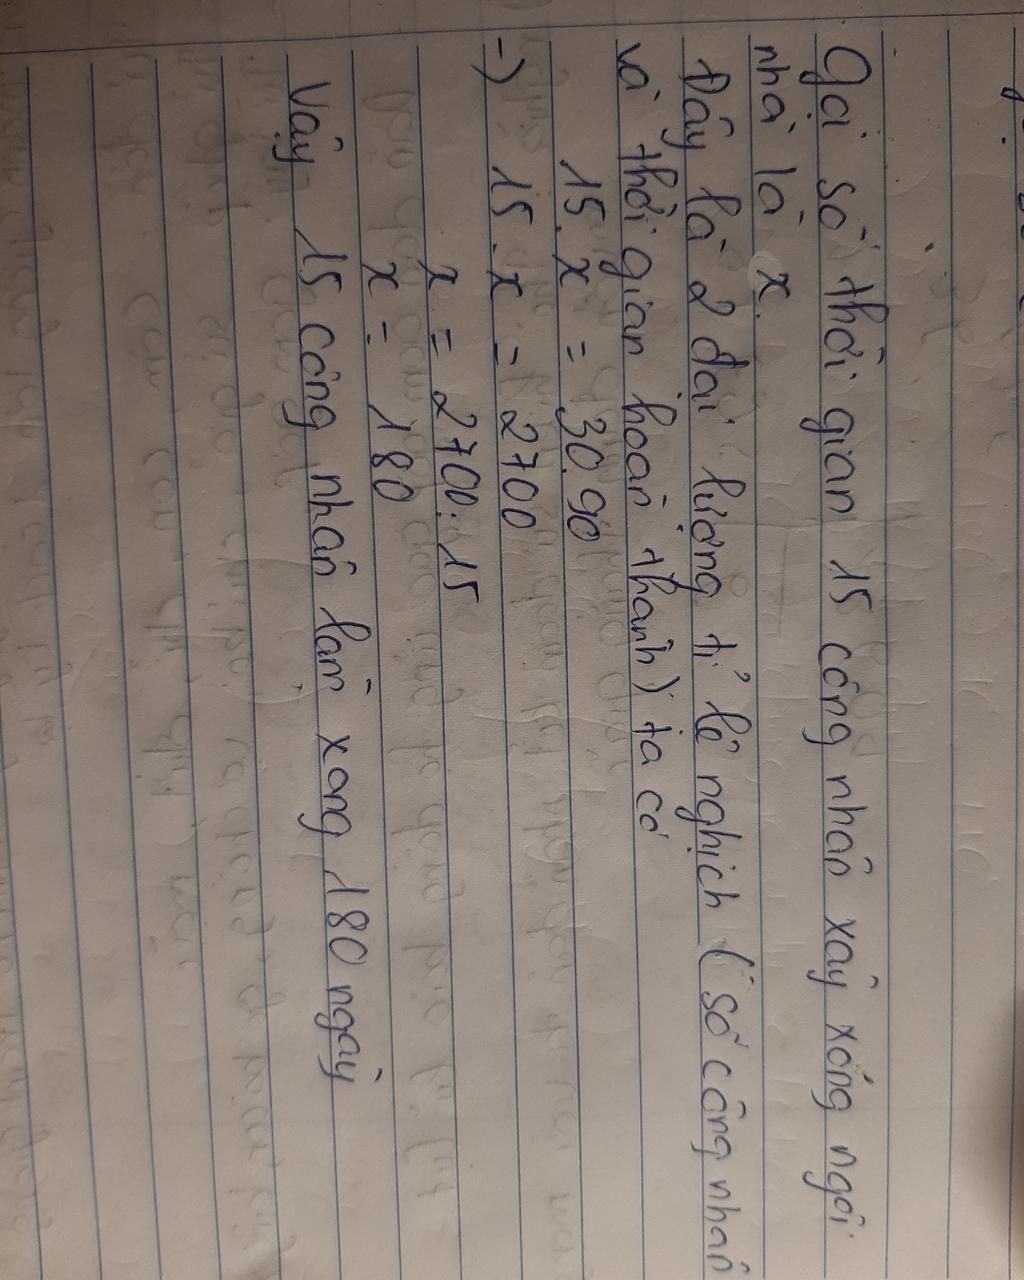 Gọi số thời gian 15 công nhân xây xóng ngôi
nhà là x.
Đây là 2 đại lượng tỉ lệ nghịch (số công nhân
và thời gian hoàn thành) ta có
15.x = 30.90
-) 15.x = 2700
x = 2700:15
x = 180
Vậy 15 công nhân làm xong 180 ngày